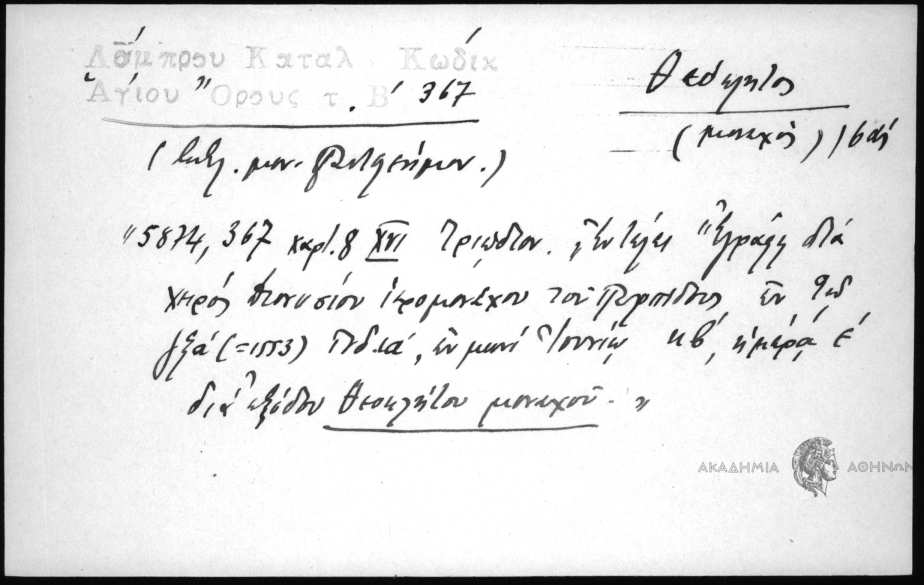 Λάμπρου Καταλ Κωδικ
Ἁγίου Ὄρους τ. Β΄ 367
Θεόκλητος
(μοναχὸς) 16 αἰ
(Κωδ. μον. Παντελεήμον.)
"5874, 367 χαρτ. 8 XVI Τριῴδιον. Ἐν τέλει "Ἐγράφη διὰ
χειρός Διονυσίου ἱερομονάχου τοῦ ἐν
ζξά (=1553) Ἰνδ. ιά, ἐν μηνί Ἰουνίῳ κβ΄, ἡμέρᾳ έ
διὰ ἐξόδου Θεοκλήτου μοναχοῦ."
ΑΚΑΔΗΜΙΑ ΑΘΗΝΩΝ